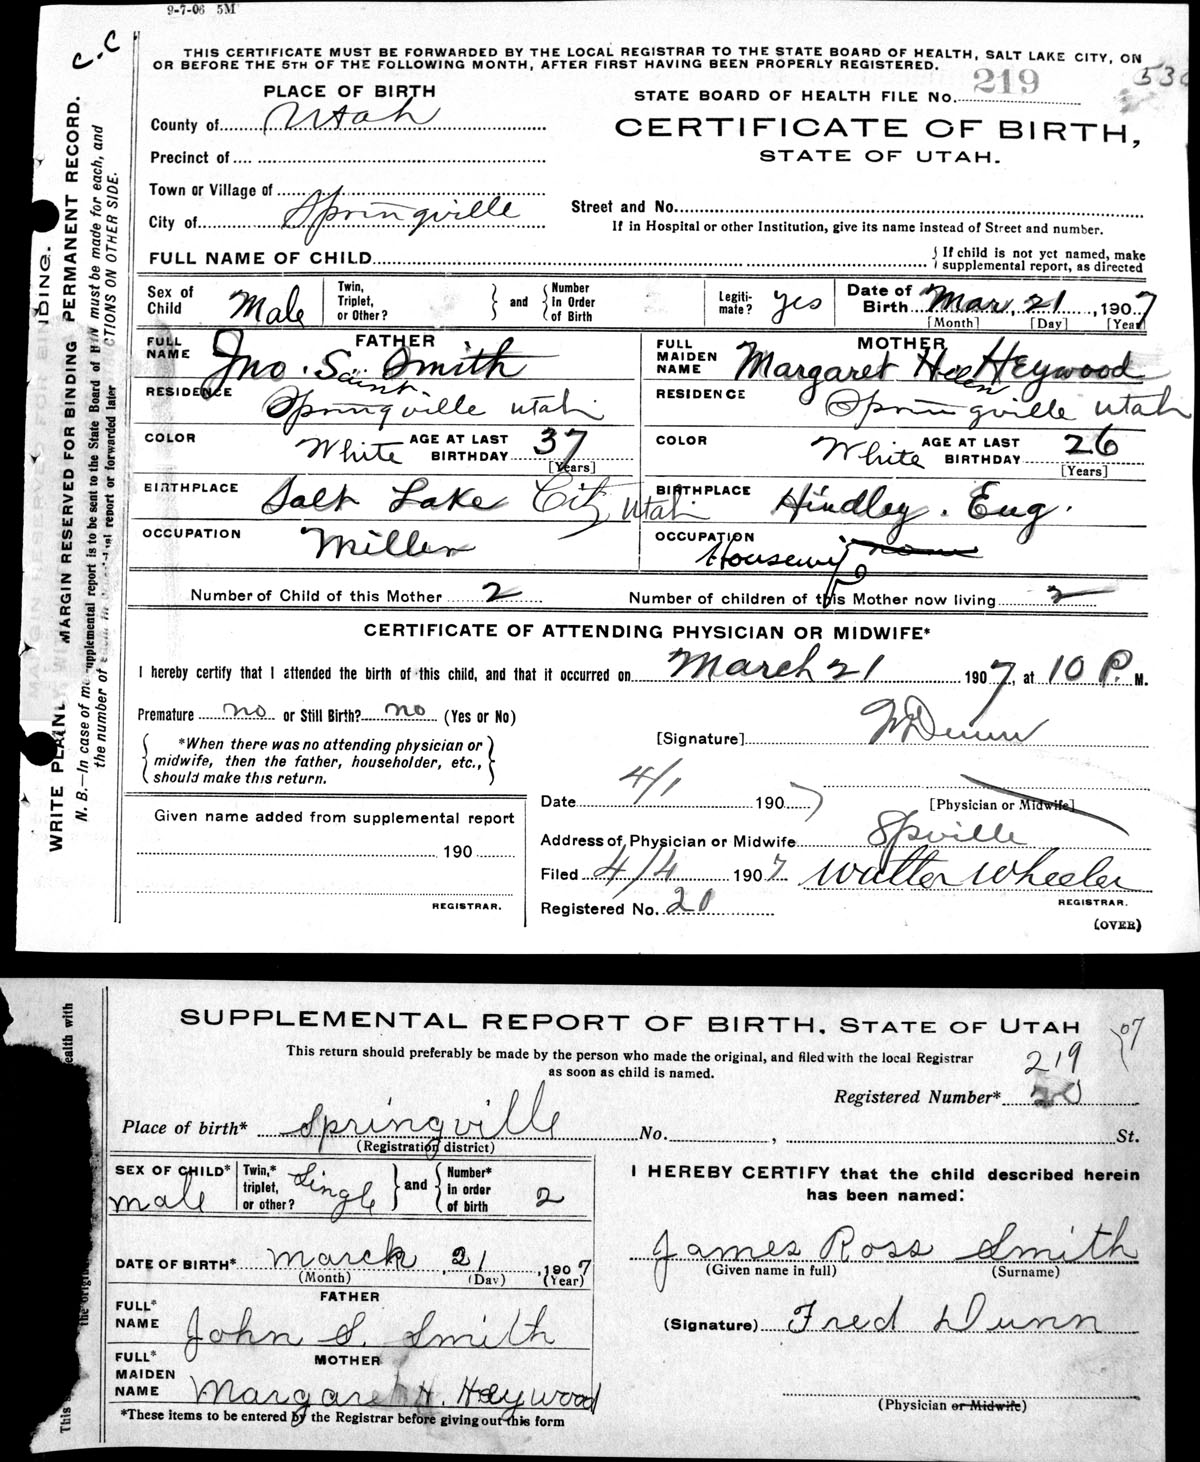 9-7-06 5M
C.C
THIS CERTIFICATE MUST BE FORWARDED BY THE LOCAL REGISTRAR TO THE STATE BOARD OF HEALTH, SALT LAKE CITY, ON
OR BEFORE THE 5TH OF THE FOLLOWING MONTH, AFTER FIRST HAVING BEEN PROPERLY REGISTERED.
PLACE OF BIRTH
STATE BOARD OF HEALTH FILE No. 219
County of Utah
CERTIFICATE OF BIRTH,
STATE OF UTAH.
Precinct of
Town or Village of
City of Springville
Street and No.
If in Hospital or other Institution, give its name instead of Street and number.
FULL NAME OF CHILD
{ If child is not yet named, make supplemental report, as directed
Sex of Child Male Twin, Triplet, or Other? } and { Number in Order of Birth Legiti-mate? yes Date of Birth Mar. 21, 1907
[Month] [Day] [Year]
FATHER MOTHER
FULL NAME Jno. Saint Smith FULL MAIDEN NAME Margaret Helen Heywood
RESIDENCE Springville Utah RESIDENCE Springville Utah
COLOR White AGE AT LAST BIRTHDAY 37 [Years] COLOR White AGE AT LAST BIRTHDAY 26 [Years]
BIRTHPLACE Salt Lake City Utah BIRTHPLACE Hindley. Eng.
OCCUPATION Miller OCCUPATION Housewife
Number of Child of this Mother 2 Number of children of this Mother now living 2
CERTIFICATE OF ATTENDING PHYSICIAN OR MIDWIFE*
I hereby certify that I attended the birth of this child, and that it occurred on March 21 1907, at 10 P. M.
Premature no or Still Birth? no (Yes or No)
[Signature] Dunn
{ *When there was no attending physician or midwife, then the father, householder, etc., should make this return. }
Date 4/1 1907
[Physician or Midwife]
Given name added from supplemental report
190
REGISTRAR.
Address of Physician or Midwife Spville
Filed 4/4 1907 Walter Wheeler
REGISTRAR.
Registered No. 20
(OVER)
WRITE PLAINLY MARGIN RESERVED FOR BINDING PERMANENT RECORD.
SUPPLEMENTAL REPORT OF BIRTH, STATE OF UTAH
07
This return should preferably be made by the person who made the original, and filed with the local Registrar
as soon as child is named.
219
Registered Number* 20
Place of birth* Springville No. , St.
(Registration district)
SEX OF CHILD* male Twin,* triplet, or other? Single } and { Number* in order of birth 2
I HEREBY CERTIFY that the child described herein
has been named:
James Ross Smith
(Given name in full) (Surname)
DATE OF BIRTH* March, 21, 1907
(Month) (Day) (Year)
FATHER
FULL* NAME John S. Smith
(Signature) Fred Dunn
MOTHER
FULL* MAIDEN NAME Margaret H. Heywood
(Physician or Midwife)
*These items to be entered by the Registrar before giving out this form